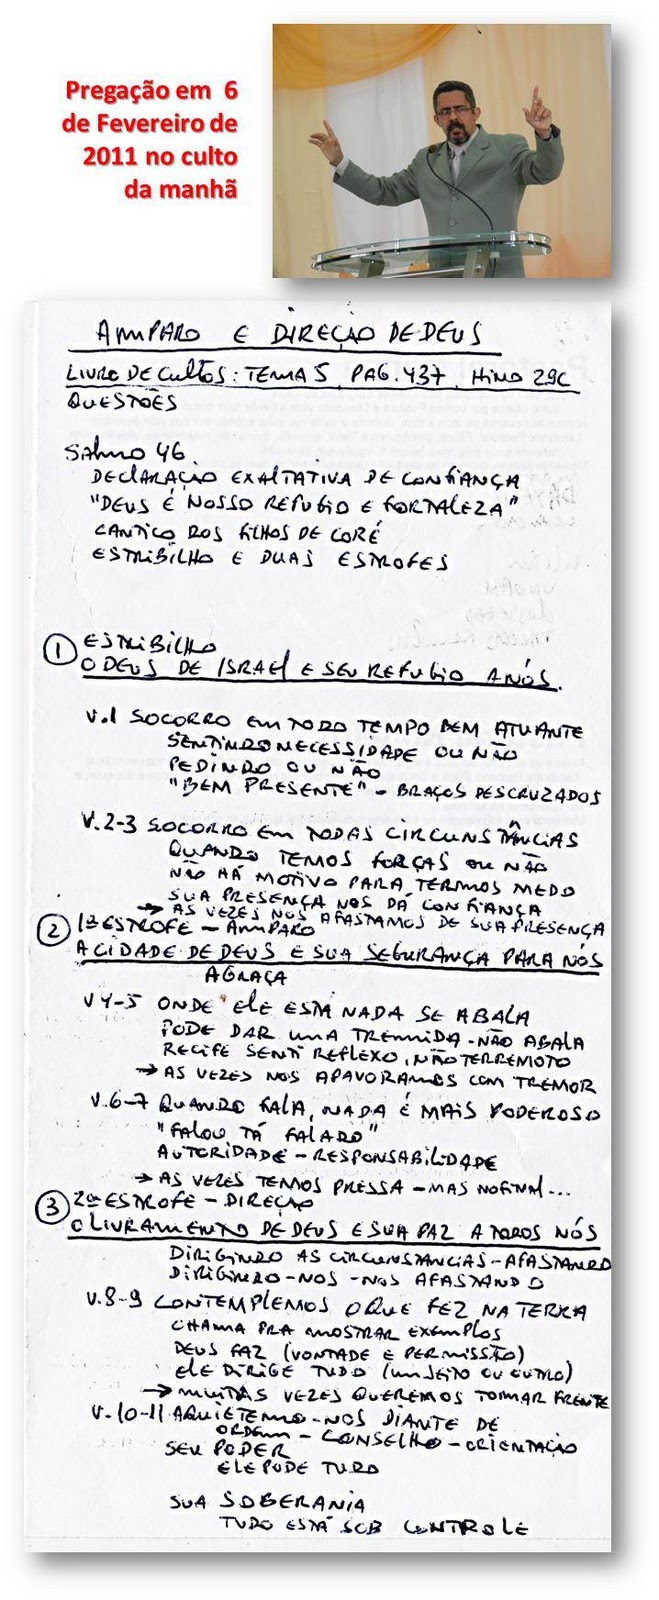 Pregação em 6
de Fevereiro de
2011 no culto
da manhã
AMPARO E DIREÇÃO DE DEUS
LIVRO DE CULTOS: TEMA 5 PAG. 437. HINO 29C
QUESTÕES
SALMO 46
DECLARAÇÃO EXALTATIVA DE CONFIANÇA
"DEUS É NOSSO REFUGIO E FORTALEZA"
CANTICO DOS FILHOS DE CORÉ
ESTRIBILHO E DUAS ESTROFES
1 ESTRIBILHO
O DEUS DE ISRAEL E SEU REFUGIO A NÓS.
V.1 SOCORRO EM TODO TEMPO BEM ATUANTE
SENTINDO NECESSIDADE OU NÃO
PEDINDO OU NÃO
"BEM PRESENTE" - BRAÇOS DESCRUZADOS
V.2-3 SOCORRO EM TODAS CIRCUNSTÂNCIAS
QUANDO TEMOS FORÇAS OU NÃO
NÃO HÁ MOTIVO PARA TERMOS MEDO
SUA PRESENÇA NOS DÁ CONFIANÇA
→ AS VEZES NOS AFASTAMOS DE SUA PRESENÇA
2 1ª ESTROFE - AMPARO
A CIDADE DE DEUS E SUA SEGURANÇA PARA NÓS
A GRAÇA
V 4-5 ONDE ELE ESTÁ NADA SE ABALA
PODE DAR UMA TREMIDA - NÃO ABALA
RECIFE SENTI REFLEXO, NÃO TERREMOTO
→ AS VEZES NOS APAVORAMOS COM TREMOR
V.6-7 QUANDO FALA, NADA É MAIS PODEROSO
"FALOU TÁ FALADO"
AUTORIDADE - RESPONSABILIDADE
→ AS VEZES TEMOS PRESSA - MAS NO FINAL...
3 2ª ESTROFE - DIREÇÃO
O LIVRAMENTO DE DEUS E SUA PAZ A TODOS NÓS
DIRIGINDO AS CIRCUNSTANCIAS - AFASTANDO
DIRIGINDO-NOS - NOS AFASTANDO
V.8-9 CONTEMPLEMOS O QUE FEZ NA TERRA
CHAMA PRA MOSTRAR EXEMPLOS
DEUS FAZ (VONTADE E PERMISSÃO)
ELE DIRIGE TUDO (UM JEITO OU OUTRO)
→ MUITAS VEZES QUEREMOS TOMAR FRENTE
V.10-11 AQUIETEMO-NOS DIANTE DE
ORDEM - CONSELHO - ORIENTAÇÃO
SEU PODER
ELE PODE TUDO
SUA SOBERANIA
TUDO ESTÁ SOB CONTROLE